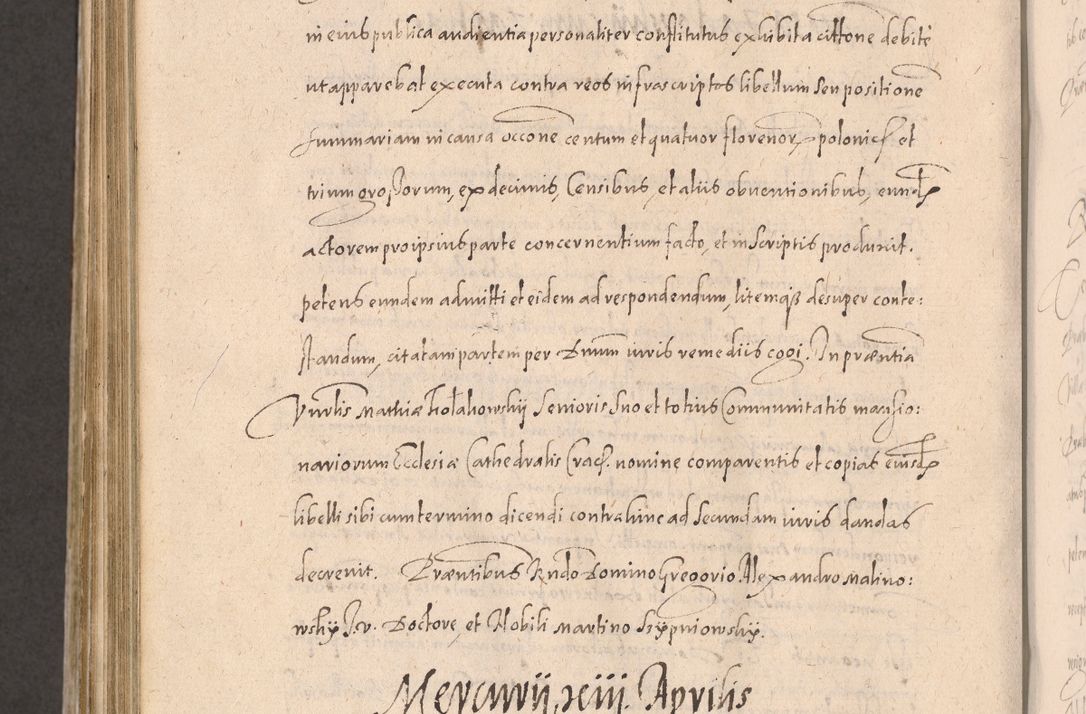 in eius publica audientia personaliter constitutus exhibita cittone debite
ut apparebat executa contra reos infrascriptos libellum seu positione
summariam in causa occone centum et quatuor florenor polonic et
trium grossorum, ex decimis, Censibus, et aliis obventionibus, eund
actorem pro ipsius parte concernentium facto, et in scriptis produxit.
petens eundem admitti et eidem ad respondendum, litemq desuper conte:
standum, citatam partem per Dnum iuris remediis cogi. In praentia
Vnrlis Mathiæ Senioris suo et totius Communitatis mansio:
nariorum Ecclesiæ Cathedralis Crac. nomine comparentis et copias eiusd
libelli sibi cum termino dicendi contra hinc ad secundam iuris dandas
decrevit. Præntibus Rndo Domino Gregorio Alexandro Malino:
wsky J.v. Doctore, et Nobili Martino Szypniowsky.
Mercurij, xiii. Aprilis